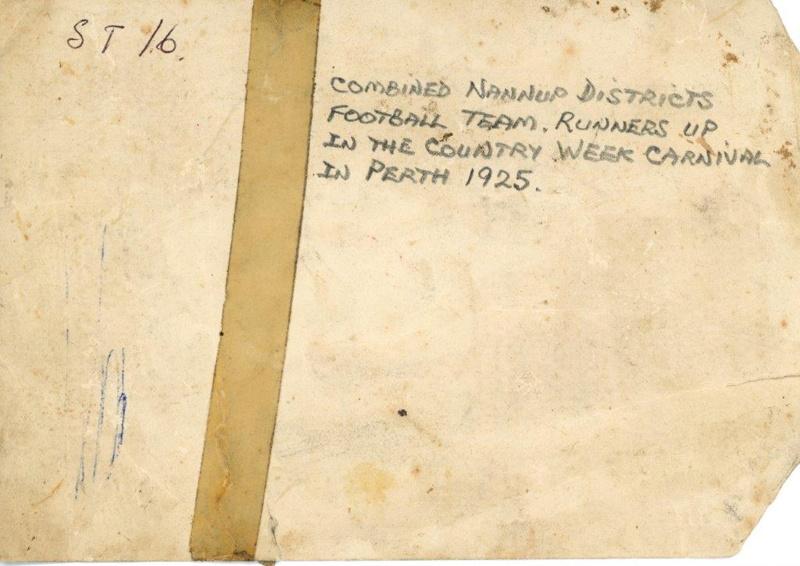 ST 16.
COMBINED NANNUP DISTRICTS
FOOTBALL TEAM. RUNNERS UP
IN THE COUNTRY WEEK CARNIVAL
IN PERTH 1925.